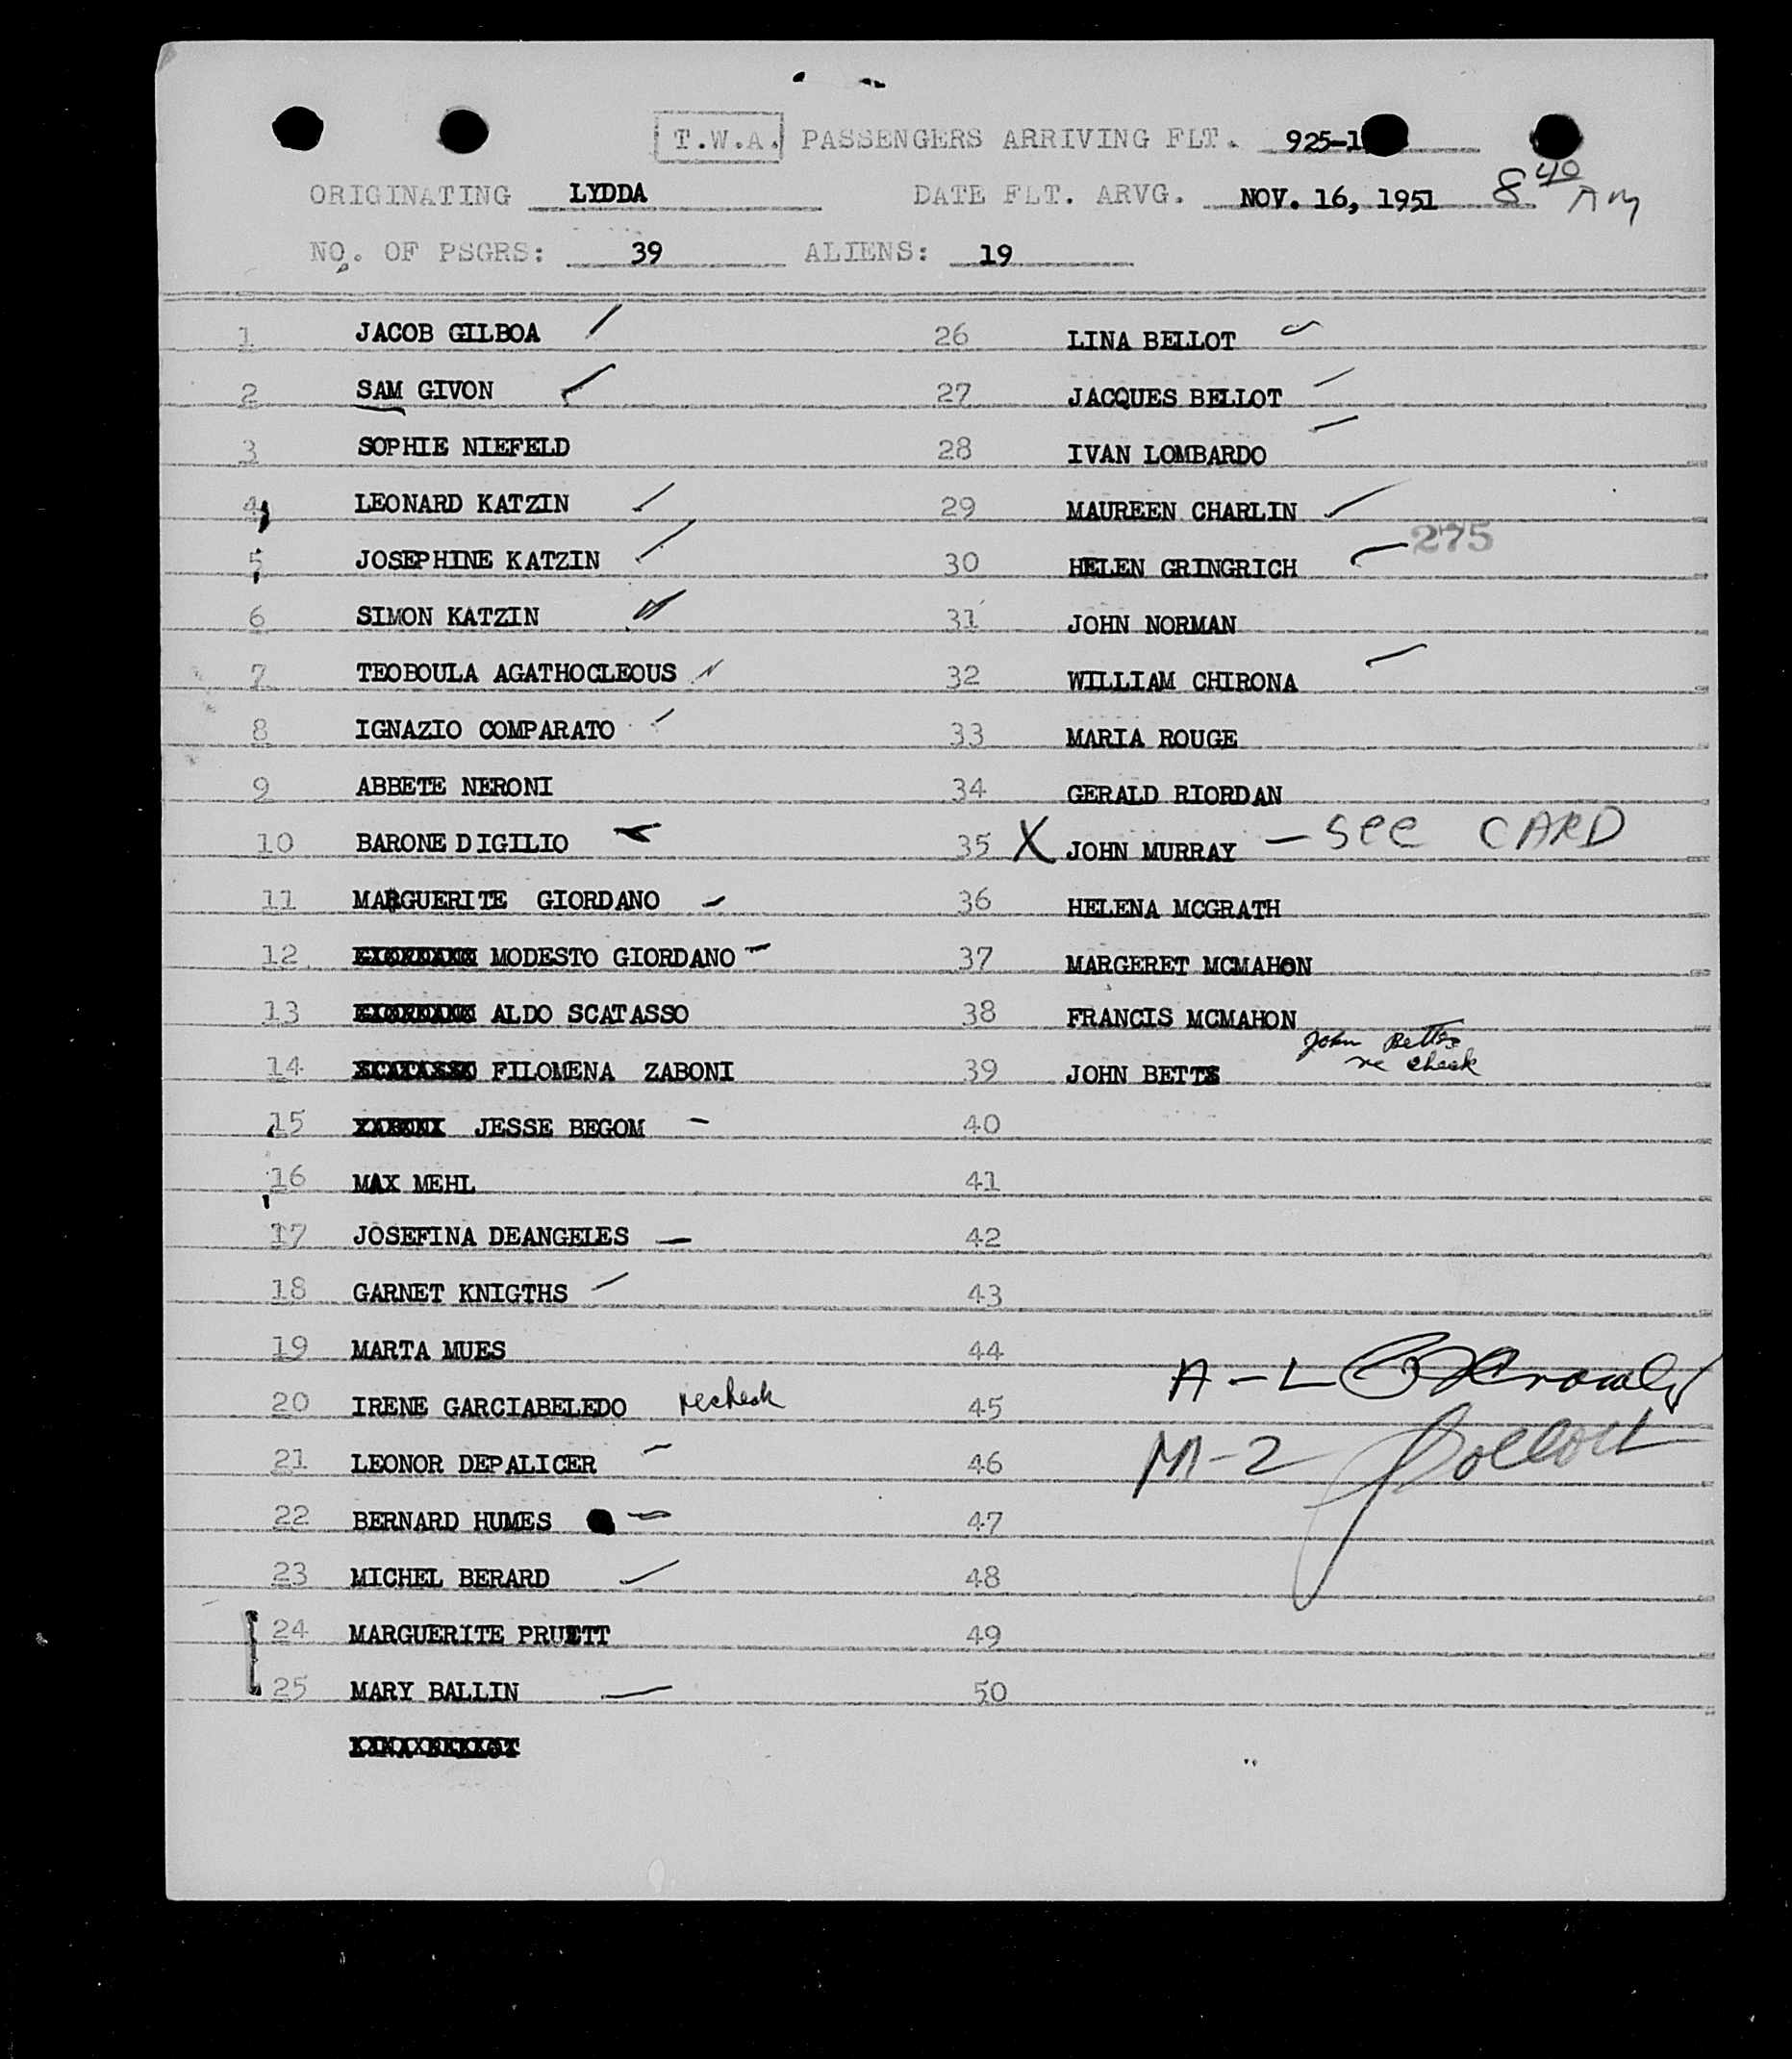 T.W.A. PASSENGERS ARRIVING FLT. 925-1
ORIGINATING LYDDA DATE FLT. ARVG. NOV. 16, 1951 8 40 AM
NO. OF PSGRS: 39 ALIENS: 19
1 JACOB GILBOA
2 SAM GIVON
3 SOPHIE NIEFELD
4 LEONARD KATZIN
5 JOSEPHINE KATZIN
6 SIMON KATZIN
7 TEOBOULA AGATHOCLEOUS
8 IGNAZIO COMPARATO
9 ABBETE NERONI
10 BARONE DIGILIO
11 MARGUERITE GIORDANO
12 MODESTO GIORDANO
13 ALDO SCATASSO
14 FILOMENA ZABONI
15 JESSE BEGOM
16 MAX MEHL
17 JOSEFINA DEANGELES
18 GARNET KNIGTHS
19 MARTA MUES
20 IRENE GARCIABELEDO recheck
21 LEONOR DEPALICER
22 BERNARD HUMES
23 MICHEL BERARD
24 MARGUERITE PRUETT
25 MARY BALLIN
26 LINA BELLOT
27 JACQUES BELLOT
28 IVAN LOMBARDO
29 MAUREEN CHARLIN
275
30 HELEN GRINGRICH
31 JOHN NORMAN
32 WILLIAM CHIRONA
33 MARIA ROUGE
34 GERALD RIORDAN
35 X JOHN MURRAY - See CARD
36 HELENA MCGRATH
37 MARGERET MCMAHON
38 FRANCIS MCMAHON
John Betts
re check
39 JOHN BETTS
40
41
42
43
44
A-L
45
M-Z
46
47
48
49
50